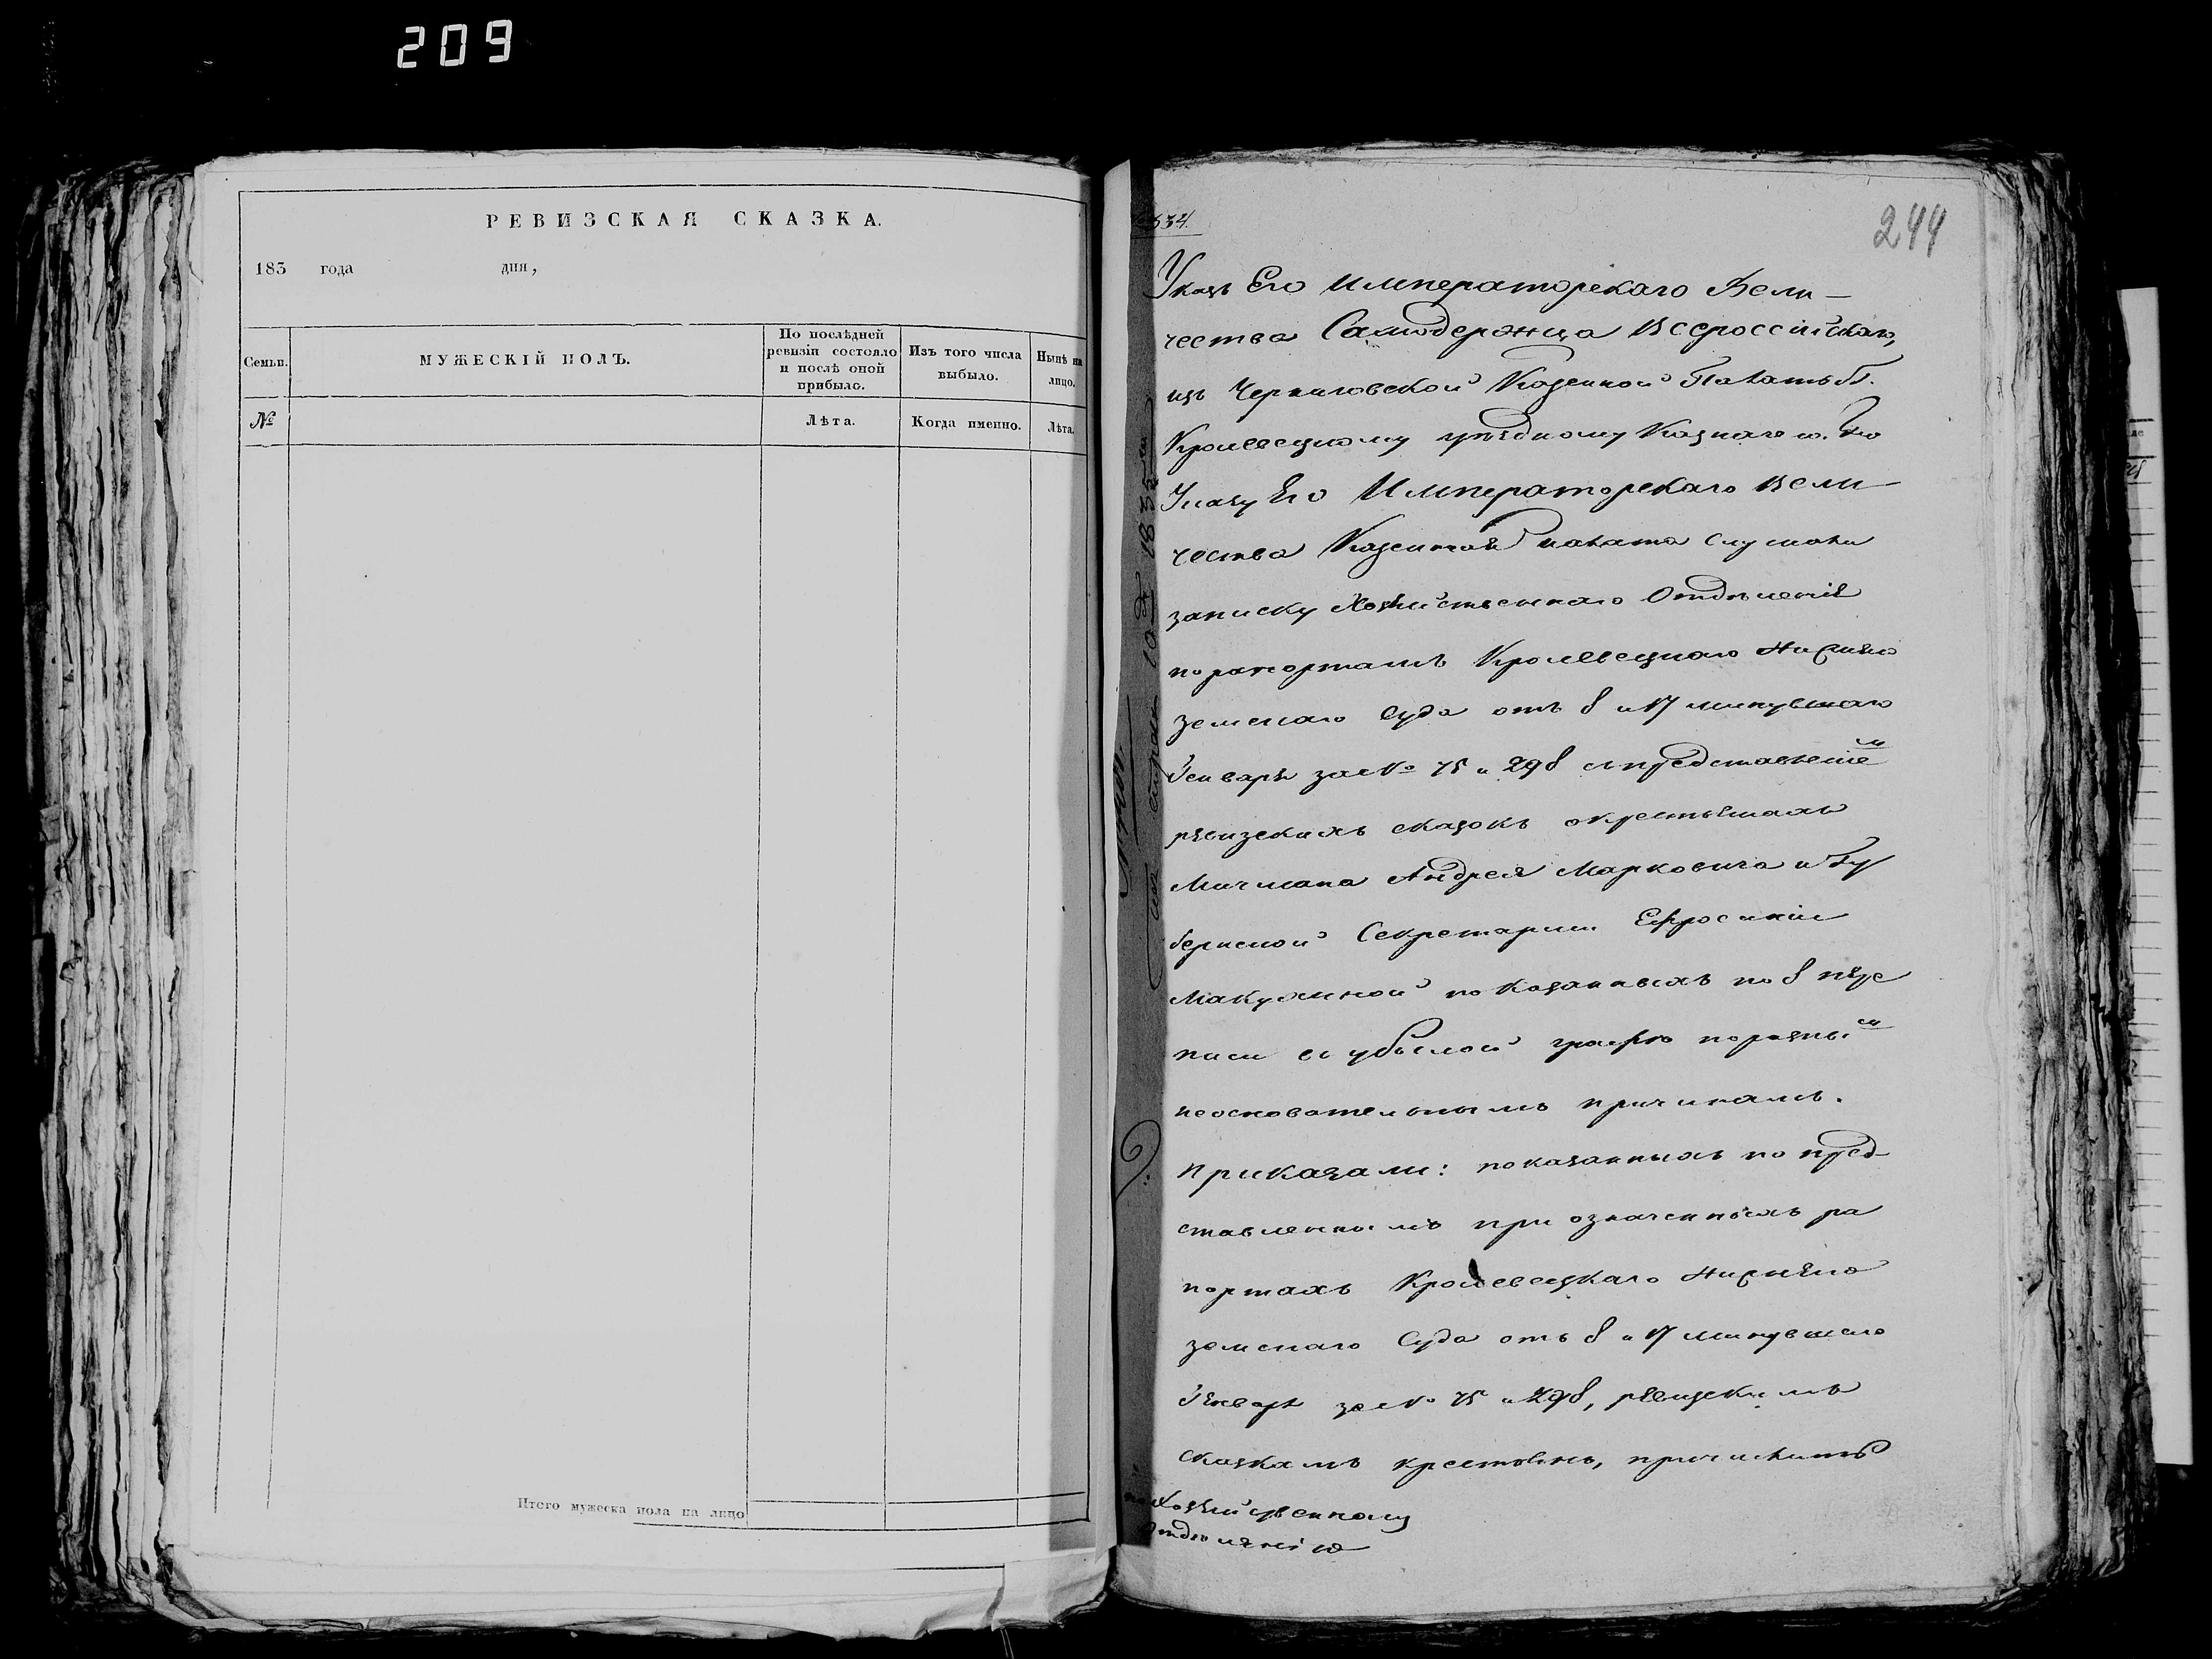 209
РЕВИЗСКАЯ СКАЗКА.
183 года дня,
Семьи.
МУЖЕСКІЙ ПОЛЪ.
По послѣдней
ревизіи состояло
и послѣ оной
прибыло.
Изъ того числа
выбыло.
Нынѣ на
лицо.
№
Лѣта.
Когда именно.
Лѣта.
Итого мужеска пола на лицо
534.
244
Указъ Его Императорскаго Вели-
чества Самодержца Всероссійскаго,
изъ Черниговской Казенной Палаты
Кролевецкому уѣздному Казначею. По
Указу Его Императорскаго Вели-
чества Казенная палата слушали
записку Хозяйственнаго Отдѣленія
по рапортамъ Кролевецкаго Нижняго
земскаго Суда отъ 8 и 17 минувшаго
Генваря за № 75 и 298 съ представленіем
ревизскихъ сказокъ о крестьянахъ
Мичмана Андрея Марковича и Гу
бернской Секретарши Ефросиніи
показанныхъ по 8 пере
писи въ убылой графѣ по разным
неосновательнымъ причинамъ.
Приказали: показанныхъ по пред-
ставленнымъ при означенныхъ ра
портахъ Кролевецкаго Нижняго
земскаго Суда отъ 8 и 17 минувшаго
Генваря за № 75 и 298, ревизскимъ
сказкамъ крестьянъ, причислить
по Хозяйственному
Отдѣленію